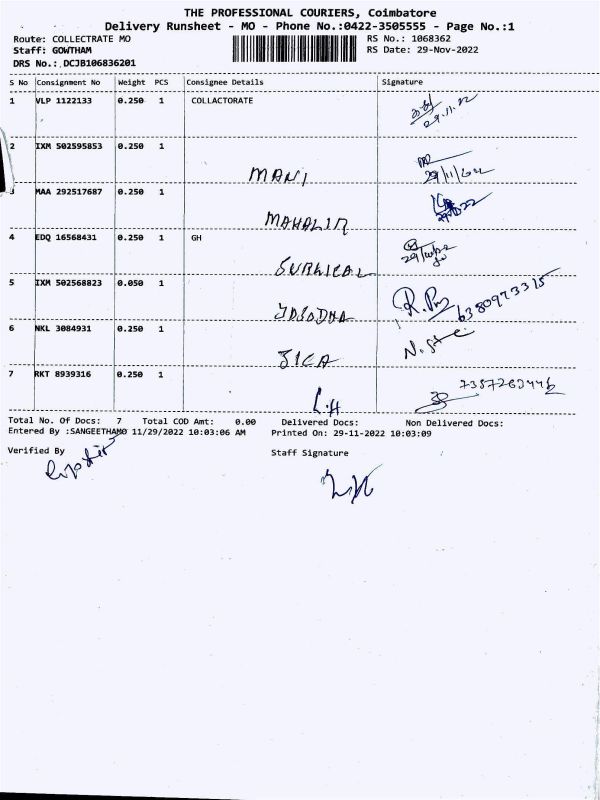 THE PROFESSIONAL COURIERS, Coimbatore
Delivery Runsheet - MO - Phone No.:0422-3505555 - Page No.:1
Route: COLLECTRATE MO RS No.: 1068362
Staff: GOWTHAM RS Date: 29-Nov-2022
DRS No.: DCJB106836201
S No Consignment No Weight PCS Consignee Details Signature
1 VLP 1122133 0.250 1 COLLACTORATE
29.11.22
2 IXM 502595853 0.250 1
MANI 29/11/22
3 MAA 292517687 0.250 1
MAHALIR
4 EDQ 16568431 0.250 1 GH
SURGICAL
5 IXM 502568823 0.050 1
YOSODHA R. 6380973315
6 NKL 3084931 0.250 1
JICA
7 RKT 8939316 0.250 1
L.H
Total No. Of Docs: 7 Total COD Amt: 0.00 Delivered Docs: Non Delivered Docs:
Entered By :SANGEETHAMO 11/29/2022 10:03:06 AM Printed On: 29-11-2022 10:03:09
Verified By Staff Signature